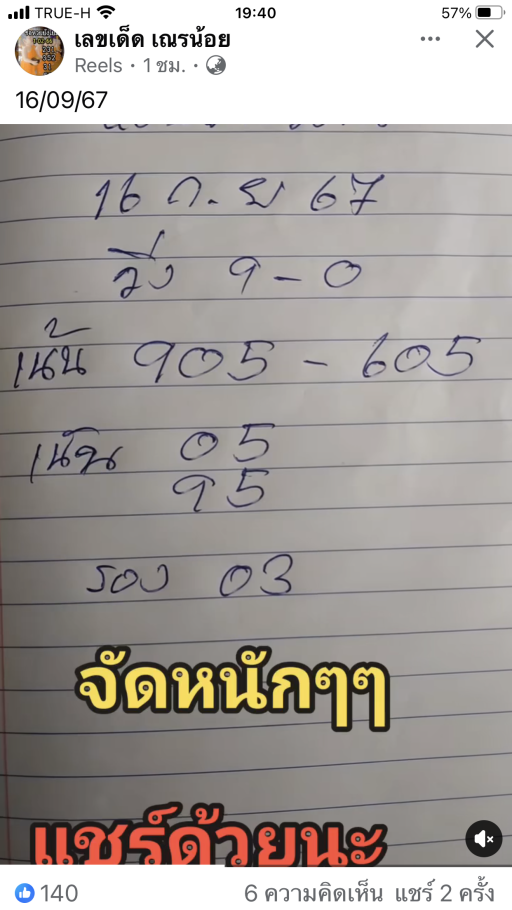 TRUE-H 19:40 57%
เลขเด็ด เณรน้อย
Reels · 1 ชม. ·
16/09/67
16 ก.ย 67
วิ่ง 9-0
เน้น 905 - 605
เน้น 05
95
รอง 03
จัดหนักๆๆ
แชร์ด้วยนะ
140 6 ความคิดเห็น แชร์ 2 ครั้ง